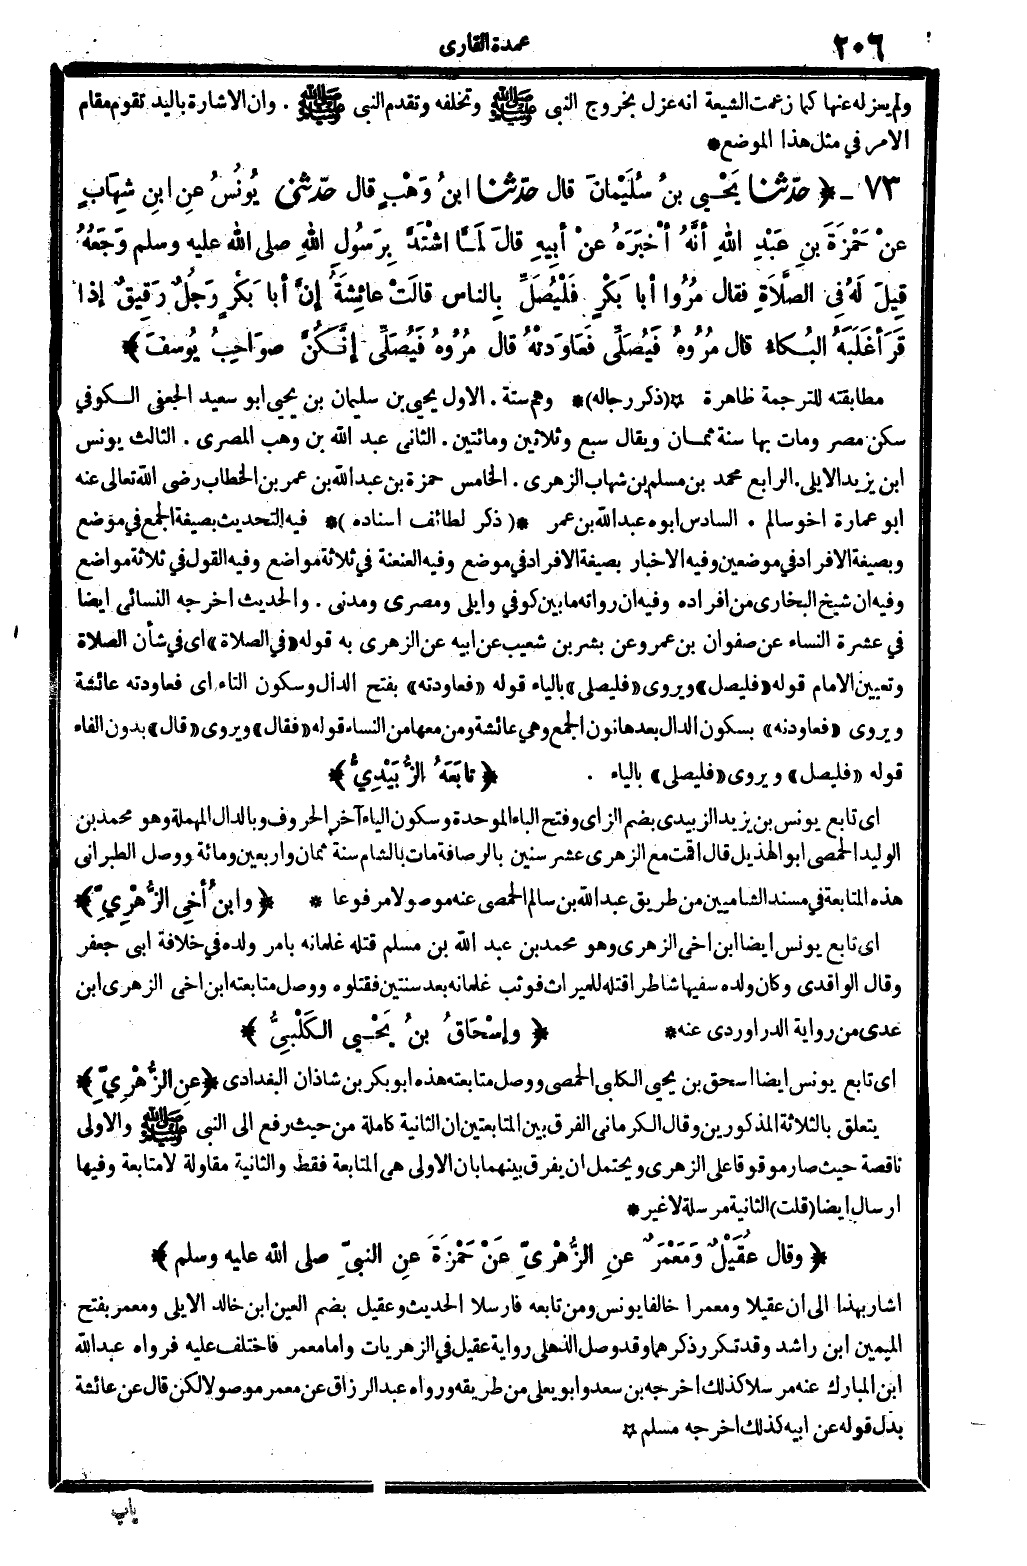 ٢٠٦
عمدة القارى
ولم يعزله عنها كما زعمت الشيعة انه عزل بخروج النبى ﷺ وتخلفه وتقدم النبى ﷺ . وان الاشارة باليد تقوم مقام
الامر في مثل هذا الموضع *
٧٣ - ﴿ حَدَّثَنَا يَحْيَى بنُ سُلَيْمَانَ قال حدّثنا ابنُ وَهْبٍ قال حدّثنى يُونُسُ عنِ ابنِ شِهَابٍ
عنْ حَمْزَةَ بنِ عَبْدِ اللهِ أنَّهُ أخْبَرَهُ عنْ أبِيهِ قالَ لَمَّا اشْتَدَّ بِرَسُولِ اللهِ صلى الله عليه وسلم وَجَعُهُ
قِيلَ لَهُ فى الصَّلَاةِ فقال مُرُوا أبا بَكْرٍ فَلْيُصَلِّ بِالناس قالَتْ عائِشَةُ إنَّ أبا بَكْرٍ رَجُلٌ رَقِيقٌ إذا
قَرَأ غَلَبَهُ البُكاءُ قال مُرُوهُ فَيُصَلِّى فَعَاوَدَتْهُ قال مُرُوهُ فَيُصَلِّى إنَّكُنَّ صوَاحِبُ يُوسُفَ ﴾
مطابقته للترجمة ظاهرة ☆(ذكر رجاله)* وهم ستة . الاول يحيى بن سليمان بن يحيى ابو سعيد الجعفى الكوفي
سكن مصر ومات بها سنة ثمان ويقال سبع وثلاثين ومائتين . الثانى عبد الله بن وهب المصرى . الثالث يونس
ابن يزيد الايلى . الرابع محمد بن مسلم بن شهاب الزهرى . الخامس حمزة بن عبد الله بن عمر بن الخطاب رضى الله تعالى عنه
ابو عمارة اخو سالم . السادس ابوه عبد الله بن عمر *( ذكر لطائف اسناده )* فيه التحديث بصيغة الجمع في موضع
وبصيغة الافراد في موضعين وفيه الاخبار بصيغة الافراد في موضع وفيه العنعنة في ثلاثة مواضع وفيه القول في ثلاثة مواضع
وفيه ان شيخ البخارى من افراده وفيه ان رواته ما بين كوفي وايلى ومصرى ومدنى . والحديث اخرجه النسائى ايضا
في عشرة النساء عن صفوان بن عمرو عن بشر بن شعيب عن ابيه عن الزهرى به قوله «في الصلاة» اى في شأن الصلاة
وتعيين الامام قوله «فليصل» ويروى «فليصلى» بالياء قوله «فعاودته» بفتح الدال وسكون التاء اى فعاودته عائشة
ويروى «فعاودنه» بسكون الدال بعدها نون الجمع وهي عائشة ومن معها من النساء قوله «فقال» ويروى «قال» بدون الفاء
قوله «فليصل» ويروى «فليصلى» بالياء . ﴿ تابَعَهُ الزُّبَيْدِىُّ ﴾
اى تابع يونس بن يزيد الزبيدى بضم الزاى وفتح الباء الموحدة وسكون الياء آخر الحروف وبالدال المهملة وهو محمد بن
الوليد الحمصى ابو الهذيل قال اقمت مع الزهرى عشر سنين بالرصافة مات بالشام سنة ثمان واربعين ومائة ووصل الطبرانى
هذه المتابعة في مسند الشاميين من طريق عبد الله بن سالم الحمصى عنه موصولا مرفوعا * ﴿ وابنُ أخِى الزُّهْرِىِّ ﴾
اى تابع يونس ايضا ابن اخى الزهرى وهو محمد بن عبد الله بن مسلم قتله غلمانه بامر ولده في خلافة ابى جعفر
وقال الواقدى وكان ولده سفيها شاطرا قتله للميراث فوثب غلمانه بعد سنتين فقتلوه ووصل متابعته ابن اخى الزهرى ابن
عدى من رواية الدراوردى عنه * ﴿ وإسْحَاقُ بنُ يَحْيى الكَلْبِىُّ ﴾
اى تابع يونس ايضا اسحق بن يحيى الكلبى الحمصى ووصل متابعته هذه ابو بكر بن شاذان البغدادى ﴿ عنِ الزُّهْرِىِّ ﴾
يتعلق بالثلاثة المذكورين وقال الكرمانى الفرق بين المتابعتين ان الثانية كاملة من حيث رفع الى النبى ﷺ والاولى
ناقصة حيث صار موقوفا على الزهرى ويحتمل ان يفرق بينهما بان الاولى هى المتابعة فقط والثانية مقاولة لا متابعة وفيها
ارسال ايضا (قلت) الثانية مرسلة لا غير *
﴿ وقال عُقَيْلٌ وَمَعْمَرٌ عنِ الزُّهْرِىِّ عَنْ حَمْزَةَ عنِ النبىِّ صلى الله عليه وسلم ﴾
اشار بهذا الى ان عقيلا ومعمرا خالفا يونس ومن تابعه فارسلا الحديث وعقيل بضم العين ابن خالد الايلى ومعمر بفتح
الميمين ابن راشد وقد تكرر ذكرهما وقد وصل الذهلى رواية عقيل في الزهريات واما معمر فاختلف عليه فرواه عبد الله
ابن المبارك عنه مرسلا كذلك اخرجه بن سعد وابو يعلى من طريقه ورواه عبد الرزاق عن معمر موصولا لكن قال عن عائشة
بدل قوله عن ابيه كذلك اخرجه مسلم ☆
باب